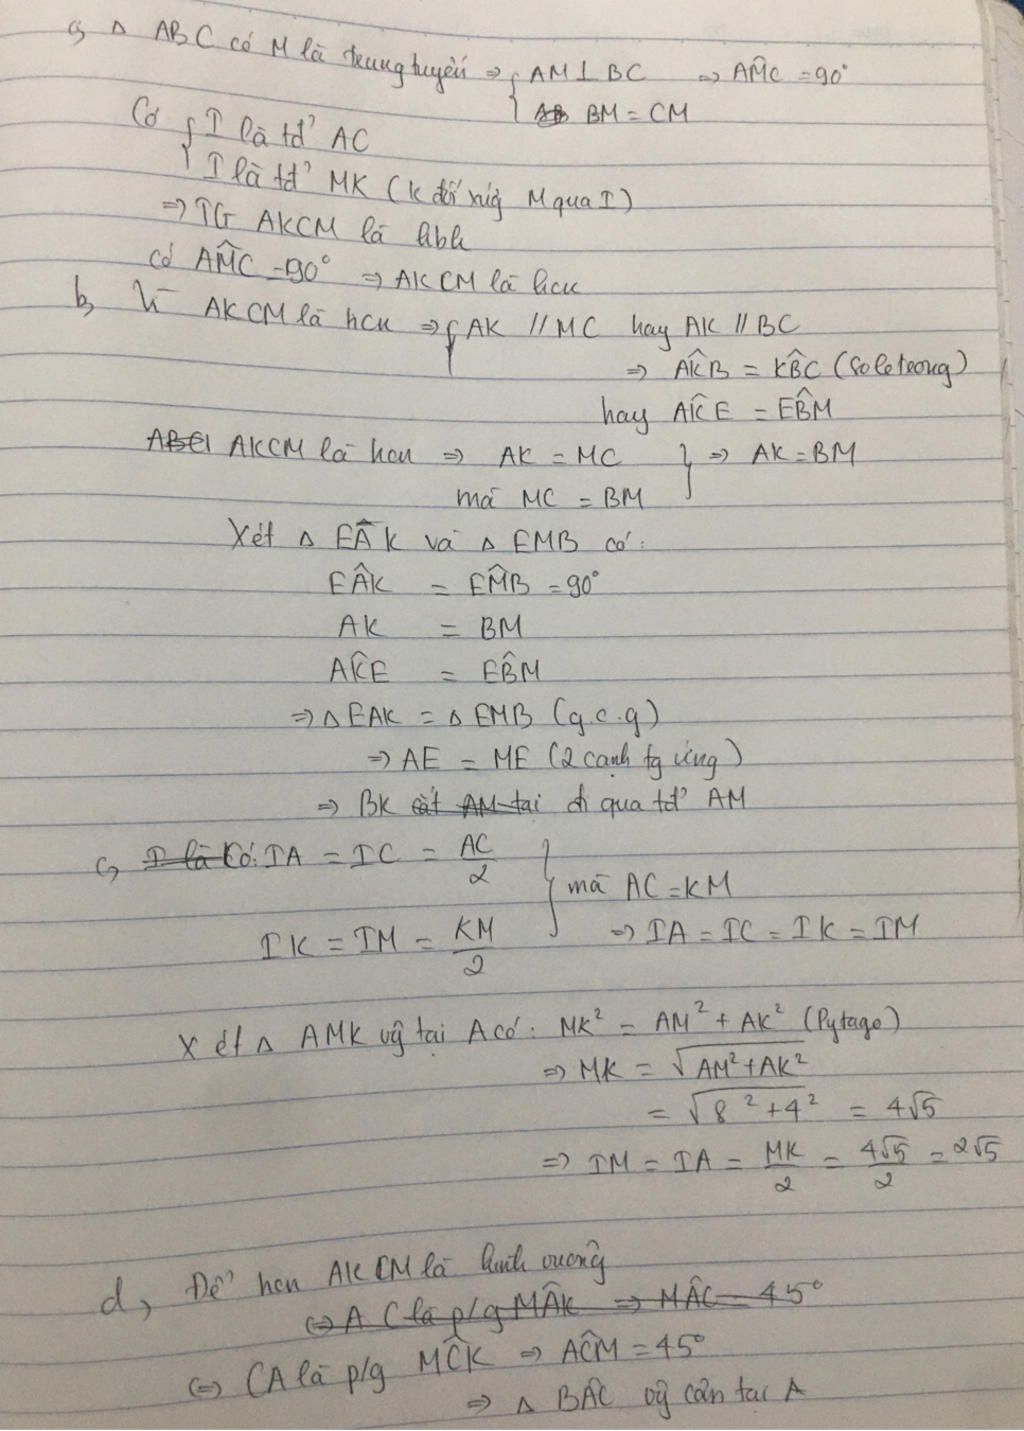 a, Δ ABC có M là trung tuyến ⇒ { AM ⊥ BC ⇒ AM̂C = 90°
BM = CM
Có { I là tđ' AC
I là tđ' MK (K đối xứng M qua I)
⇒ TG AKCM là hbh
có AM̂C = 90° ⇒ AKCM là hcn
b, Vì AKCM là hcn ⇒ { AK // MC hay AK // BC
⇒ AK̂B = KB̂C (so le trong)
hay AK̂E = EB̂M
AKCM là hcn ⇒ AK = MC } ⇒ AK = BM
mà MC = BM
Xét Δ EÂK và Δ EMB có:
EÂK = EM̂B = 90°
AK = BM
AK̂E = EB̂M
⇒ Δ EAK = Δ EMB (g.c.g)
⇒ AE = ME (2 cạnh tg ứng)
⇒ BK cắt AM tại đi qua tđ' AM
c, I là Có: IA = IC = AC/2 } mà AC = KM
IK = IM = KM/2 ⇒ IA = IC = IK = IM
Xét Δ AMK vg̃ tại A có: MK² = AM² + AK² (Pytago)
⇒ MK = √AM² + AK²
= √8² + 4² = 4√5
⇒ IM = IA = MK/2 = 4√5/2 = 2√5
d, Để hcn AKCM là hình vuông
⇔ AC là p/g MÂK ⇒ MÂC = 45°
⇔ CA là p/g MĈK ⇒ AĈM = 45°
⇒ Δ BÂC vg̃ cân tại A